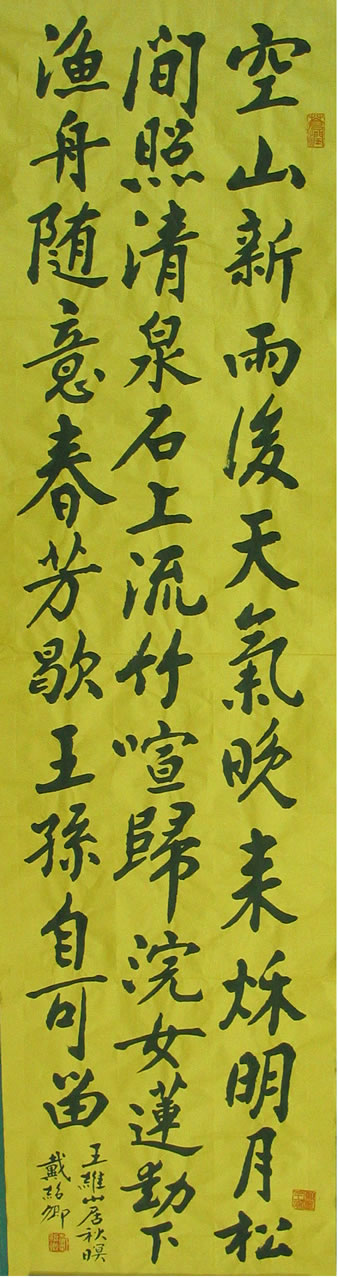 空山新雨後天氣晚来秋明月松
間照清泉石上流竹喧歸浣女蓮動下
渔舟随意春芳歇王孫自可留
王維山居秋暝
戴紹卿